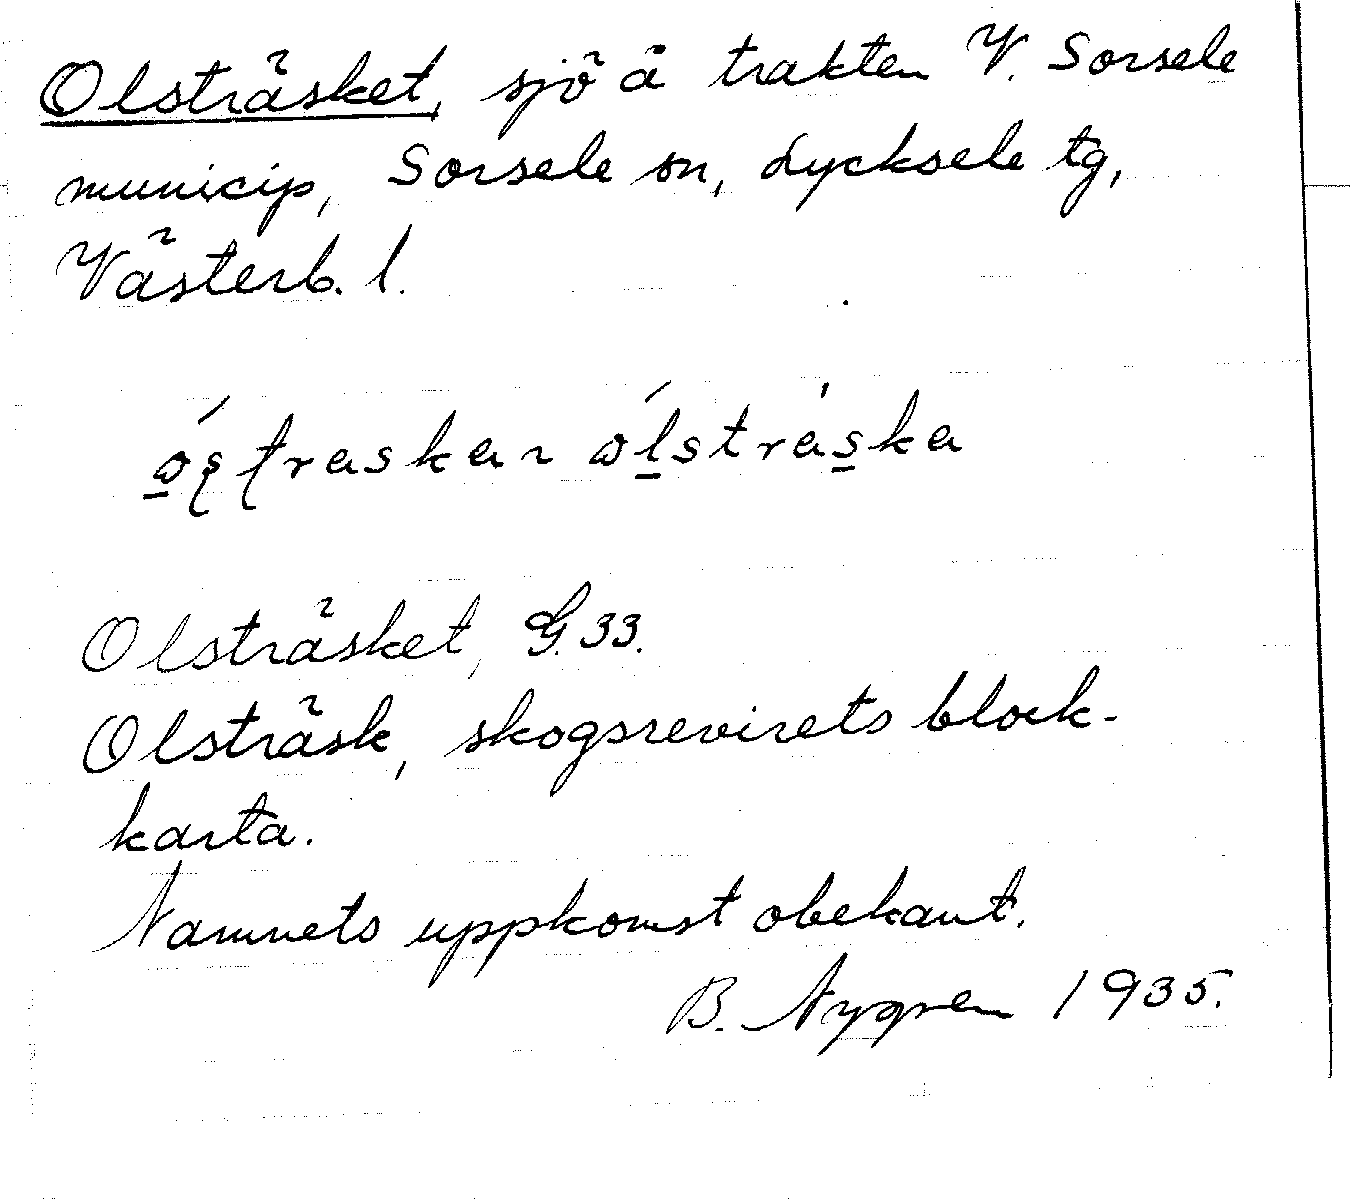 Olsträsket, sjö å trakten V. Sorsele
municip, Sorsele sn, Lycksele tg,
Västerb. l.
Olsträsket, G. 33.
Olsträsk, skogsrevirets block-
karta.
Namnets uppkomst obekant.
B. Nygren 1935.